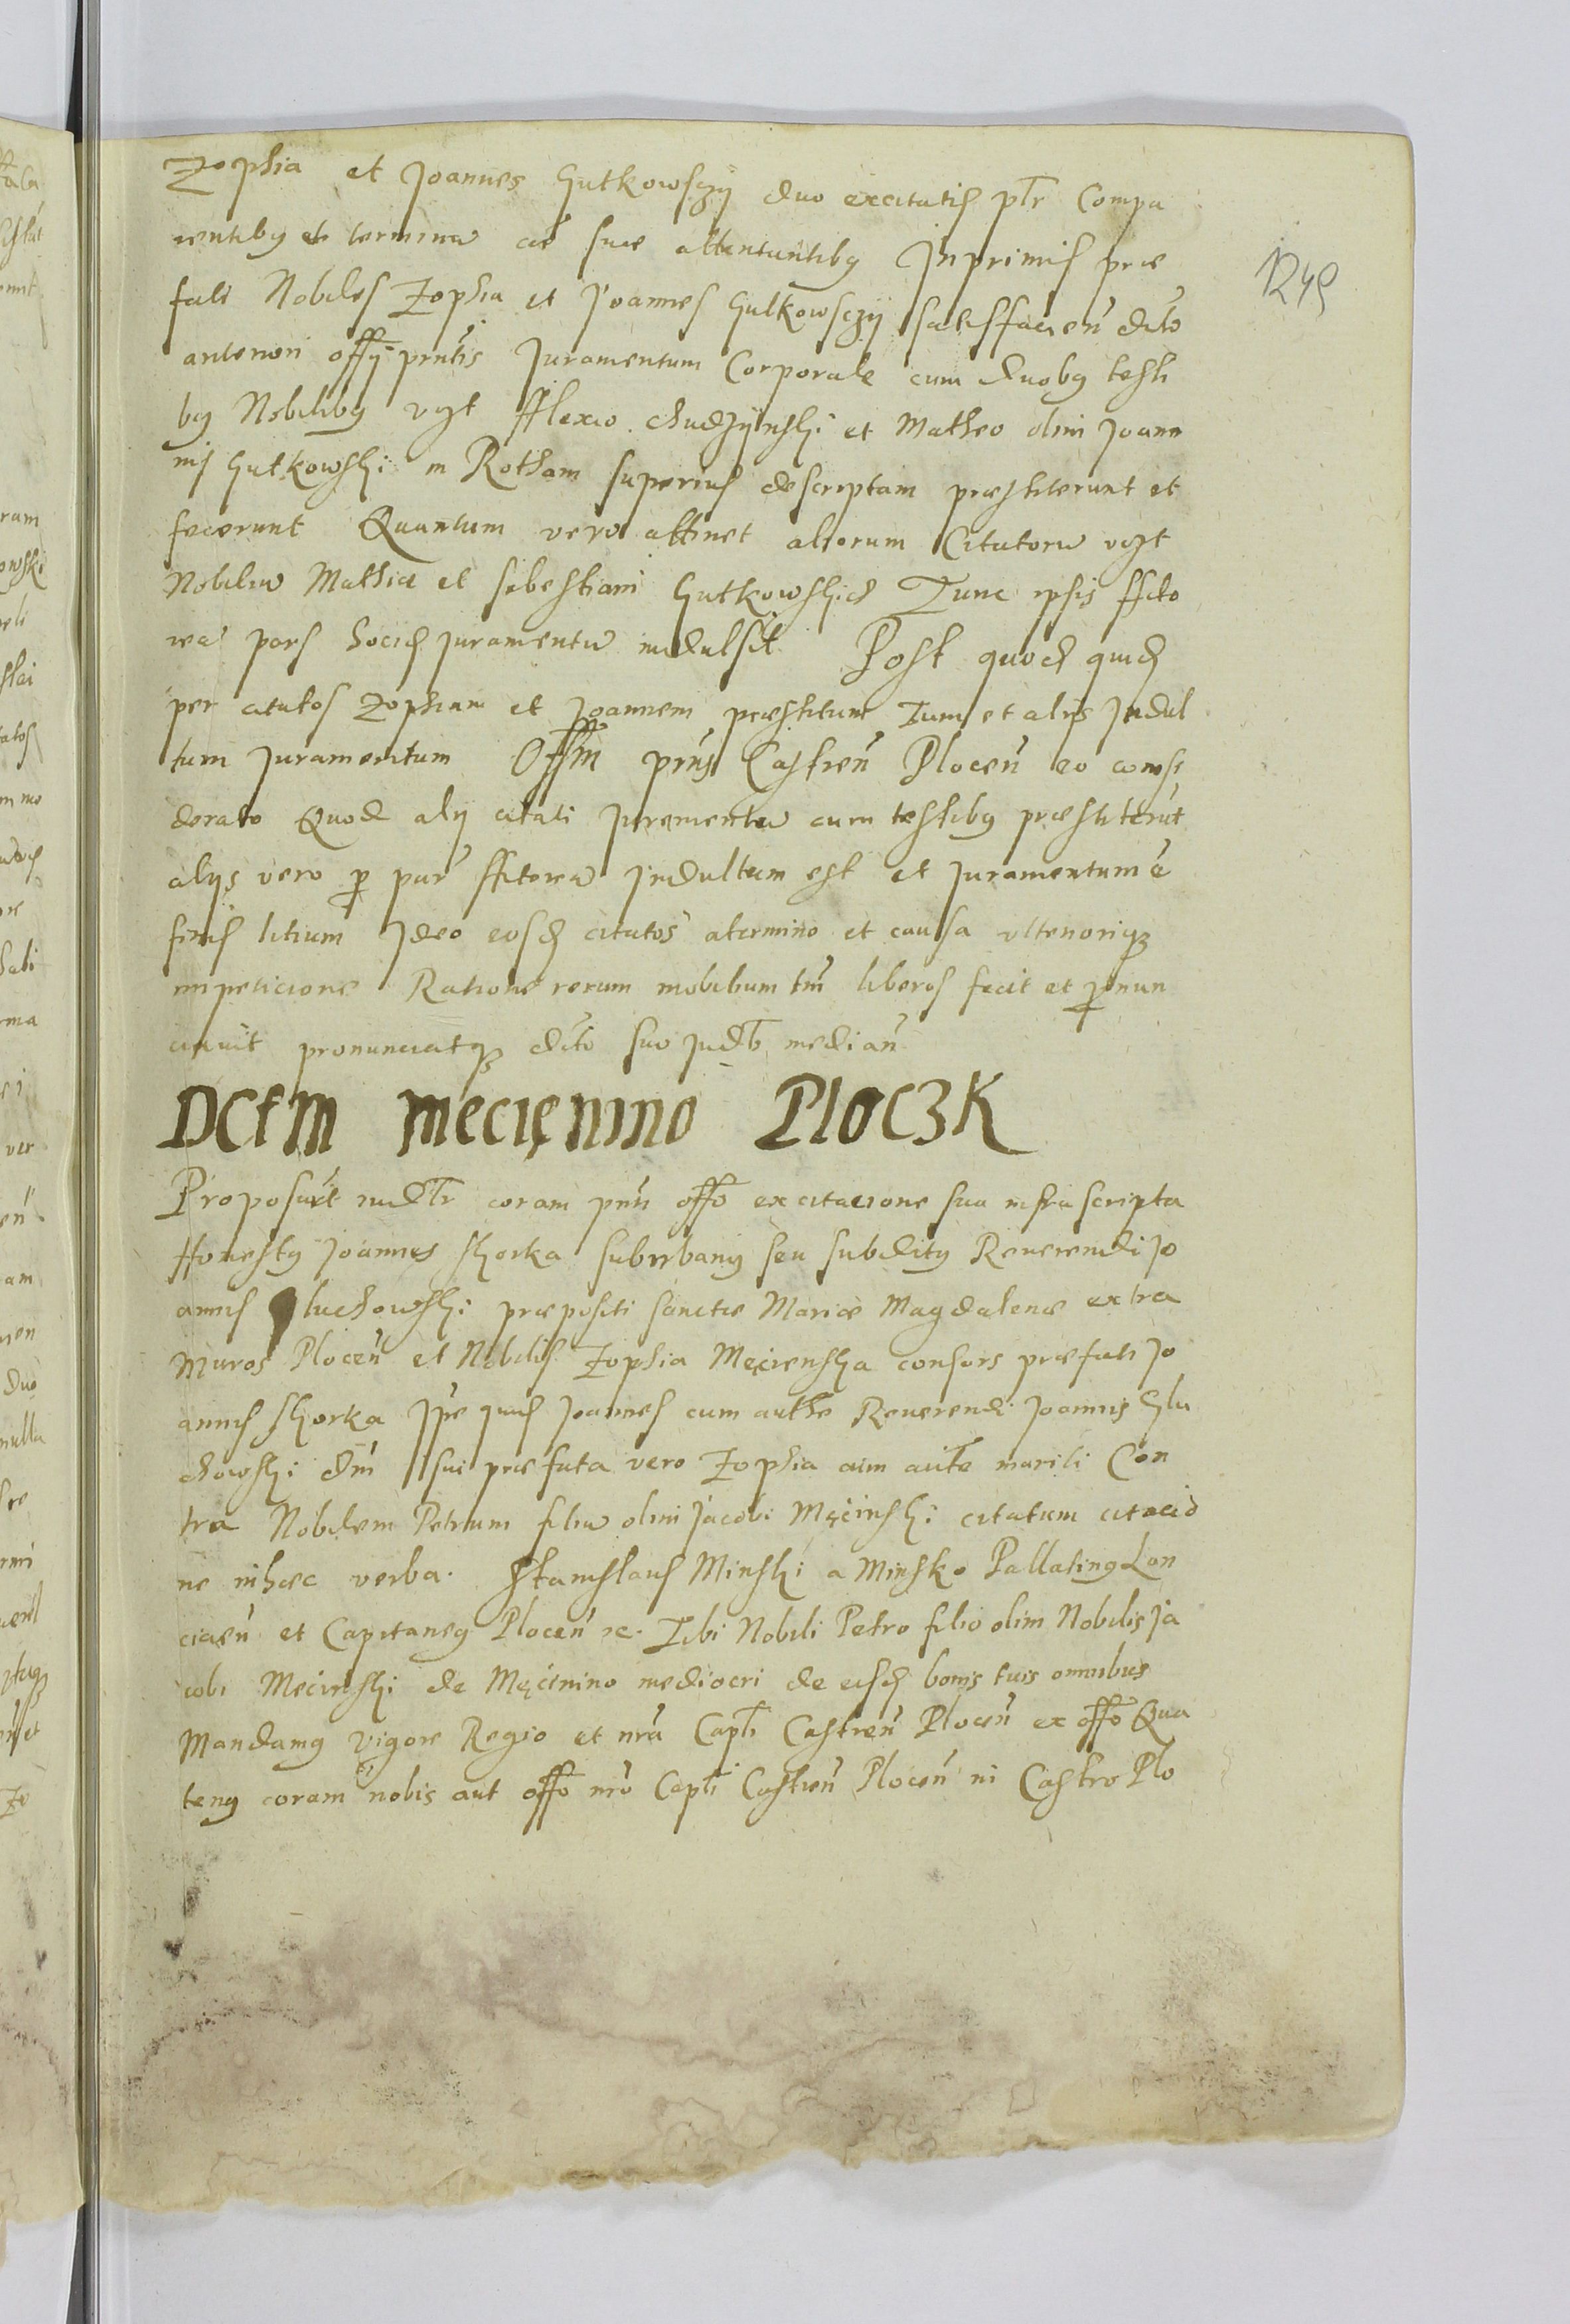 Zophia et Joannes Gutkowsczÿ duo excitatis ptr Compa
rentibꝯ et terminũ cũ suis attentantibꝯ Inprimis præ
fati Nobiles Zophia et Joannes Gutkowsczÿ satisfacień dcto
anteriori offÿ pñtis Juramentum Corporale cum duobꝯ testi
bꝯ Nobilibꝯ vꝫt fflexio Chudzÿnski et Matheo olim Joann
nis Gutkowski in Rotham superius descriptam præstiterunt et
fecerunt Quantum vero attinet aliorum Citatorũ vꝫt
Nobiliũ Mathiæ et sebestiani Gutkowskich Tunc ipsis Actö
rea pars hocids Juramentũ indulsit Post quod quid
per citatos Zophiam et Joannem præstitum Tum et aliis Indul
tum Juramentum Offm pñs Castreń Ploceń eo consi
derato Quod alÿ citati Jurementũ cum testibꝯ præstiterũt
alÿs vero p par Actorea Indultum est et Juramentum ẽ
finis litium Ideo eosd citatos atermino et causa vlteriorÿqꝫ
impeticione Ratione rerum mobilium tm̃ liberos fecit et ꝓnun
ciavit pronunciatqꝫ dcto suo Judb median̄
DCtm męcięnino PloczK
Proposuet iudtr coram pñti offo ex citacione sua infrascripta
Honestꝯ Joannes Skorka suburbanꝯ seu subditꝯ Reuerendi Jo
annis Gluchowski præpositi sanctæ Mariæ Magdalenæ extra
Muros Ploceń et Nobilis Zophia Męcienska consors præfati Jo
annis Skorka Jpe quids Joannes cum authe Reuerendi Joannis Glu
chowski dm̃ sui præfata vero Zophia cum auté mariti Con
tra Nobilem Petrum filiũ olim Jacobi Męcinski citatum citacio
ne inhæc verba. Stanislaus Minski a Minsko Pallatinꝯ Lan
cicień et Capitaneꝯ Ploceń ꝛc. Tibi Nobili Petro filio olim Nobilis Ja
cobi Mecinski de Męcinino mediocri de eisd bonis tuis omnibus
Mandamꝯ vigore Regio et nrã Capli Castreń Ploceń ex offo Qua
tenꝯ coram nobis aut offo nrõ Capli Castreń Ploceń in Castro Plo
1249